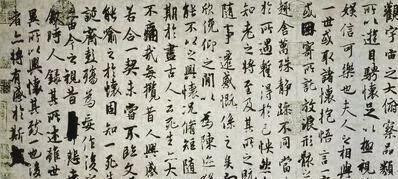 觀宇宙之大俯察品類
所以遊目騁懷足以極視
娛信可樂也夫人之相與
一世或取諸懷抱悟言一
或因寄所託放浪形骸
趣舍萬殊靜躁不同當
於所遇暫得於己怏然
知老之將至及其所之
隨事遷感慨係之矣
欣俛仰之閒以為陳迹
能不以之興懷況脩短隨
期於盡古人云死生亦大
不痛哉每攬昔人興感
若合一契未嘗不臨文
能喻之於懷固知一死生
誕齊彭殤為妄作後
由今之視昔
敘時人錄其所述雖世
異所以興懷其致一也後
者亦將有感於斯